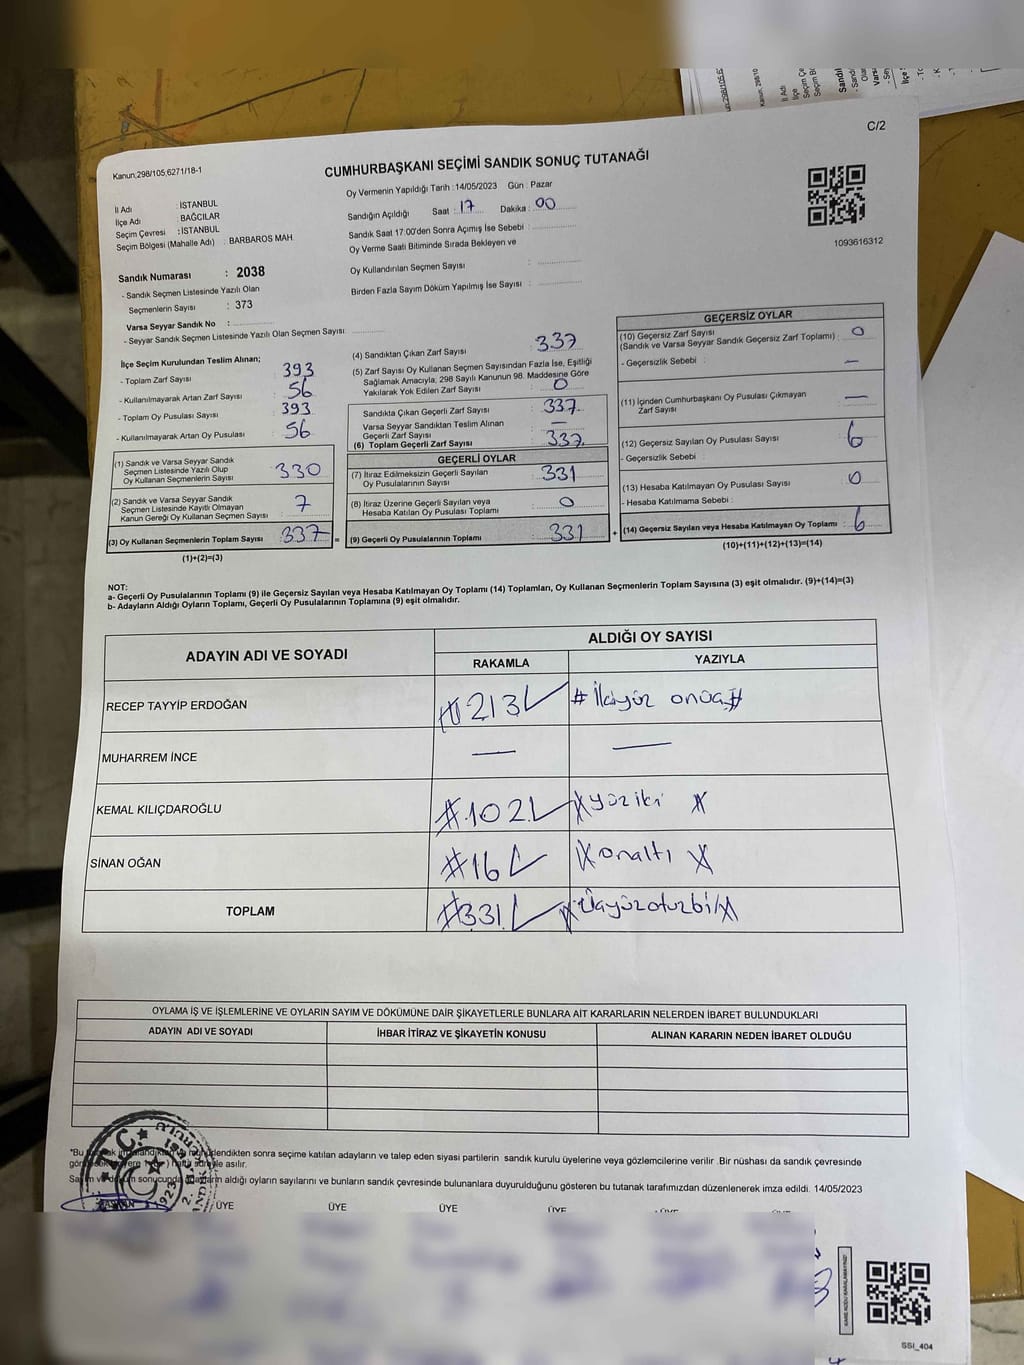 C/2
Kanun;298/105,6271/18-1
CUMHURBAŞKANI SEÇİMİ SANDIK SONUÇ TUTANAĞI
İl Adı : İSTANBUL
İlçe Adı : BAĞCILAR
Seçim Çevresi : İSTANBUL
Seçim Bölgesi (Mahalle Adı) : BARBAROS MAH.
Sandık Numarası : 2038
- Sandık Seçmen Listesinde Yazılı Olan
Seçmenlerin Sayısı : 373
Varsa Seyyar Sandık No :
- Seyyar Sandık Seçmen Listesinde Yazılı Olan Seçmen Sayısı:
Oy Vermenin Yapıldığı Tarih : 14/05/2023 Gün : Pazar
Sandığın Açıldığı Saat : 17 Dakika : 00
Sandık Saat 17.00'den Sonra Açımış İse Sebebi :
Oy Verme Saati Bitiminde Sırada Bekleyen ve
Oy Kullandırılan Seçmen Sayısı :
Birden Fazla Sayım Döküm Yapılmış İse Sayısı :
1093616312
İlçe Seçim Kurulundan Teslim Alınan;
- Toplam Zarf Sayısı 393
- Kullanılmayarak Artan Zarf Sayısı 56
- Toplam Oy Pusulası Sayısı 393
- Kullanılmayarak Artan Oy Pusulası 56
(1) Sandık ve Varsa Seyyar Sandık
Seçmen Listesinde Yazılı Olup
Oy Kullanan Seçmenlerin Sayısı 330
(2) Sandık ve Varsa Seyyar Sandık
Seçmen Listesinde Kayıtlı Olmayan
Kanun Gereği Oy Kullanan Seçmen Sayısı : 7
(3) Oy Kullanan Seçmenlerin Toplam Sayısı : 337 =
(1)+(2)=(3)
(4) Sandıktan Çıkan Zarf Sayısı : 337
(5) Zarf Sayısı Oy Kullanan Seçmen Sayısından Fazla İse, Eşitliği
Sağlamak Amacıyla; 298 Sayılı Kanunun 98. Maddesine Göre
Yakılarak Yok Edilen Zarf Sayısı : 0
Sandıkta Çıkan Geçerli Zarf Sayısı : 337
Varsa Seyyar Sandıktan Teslim Alınan
Geçerli Zarf Sayısı : —
(6) Toplam Geçerli Zarf Sayısı : 337
GEÇERLİ OYLAR
(7) İtiraz Edilmeksizin Geçerli Sayılan
Oy Pusulalarının Sayısı : 331
(8) İtiraz Üzerine Geçerli Sayılan veya
Hesaba Katılan Oy Pusulası Toplamı : 0
(9) Geçerli Oy Pusulalarının Toplamı : 331 +
GEÇERSİZ OYLAR
(10) Geçersiz Zarf Sayısı
(Sandık ve Varsa Seyyar Sandık Geçersiz Zarf Toplamı) : 0
- Geçersizlik Sebebi : —
(11) İçinden Cumhurbaşkanı Oy Pusulası Çıkmayan
Zarf Sayısı : —
(12) Geçersiz Sayılan Oy Pusulası Sayısı : 6
- Geçersizlik Sebebi :
(13) Hesaba Katılmayan Oy Pusulası Sayısı : 0
- Hesaba Katılmama Sebebi :
(14) Geçersiz Sayılan veya Hesaba Katılmayan Oy Toplamı : 6
(10)+(11)+(12)+(13)=(14)
NOT:
a- Geçerli Oy Pusulalarının Toplamı (9) ile Geçersiz Sayılan veya Hesaba Katılmayan Oy Toplamı (14) Toplamları, Oy Kullanan Seçmenlerin Toplam Sayısına (3) eşit olmalıdır. (9)+(14)=(3)
b- Adayların Aldığı Oyların Toplamı, Geçerli Oy Pusulalarının Toplamına (9) eşit olmalıdır.
ADAYIN ADI VE SOYADI ALDIĞI OY SAYISI
RAKAMLA YAZIYLA
RECEP TAYYİP ERDOĞAN #213 # İkiyüz onüç #
MUHARREM İNCE — —
KEMAL KILIÇDAROĞLU #102 # yüziki #
SİNAN OĞAN #16 # onaltı #
TOPLAM #331 # Üçyüzotuzbir #
OYLAMA İŞ VE İŞLEMLERİNE VE OYLARIN SAYIM VE DÖKÜMÜNE DAİR ŞİKAYETLERLE BUNLARA AİT KARARLARIN NELERDEN İBARET BULUNDUKLARI
ADAYIN ADI VE SOYADI İHBAR İTİRAZ VE ŞİKAYETİN KONUSU ALINAN KARARIN NEDEN İBARET OLDUĞU
*Bu sonra seçime katılan adayların ve talep eden siyasi partilerin sandık kurulu üyelerine veya gözlemcilerine verilir .Bir nüshası da sandık çevresinde
asılır.
aldığı oyların sayılarını ve bunların sandık çevresinde bulunanlara duyurulduğunu gösteren bu tutanak tarafımızdan düzenlenerek imza edildi. 14/05/2023
ÜYE ÜYE ÜYE ÜYE
SSI_404